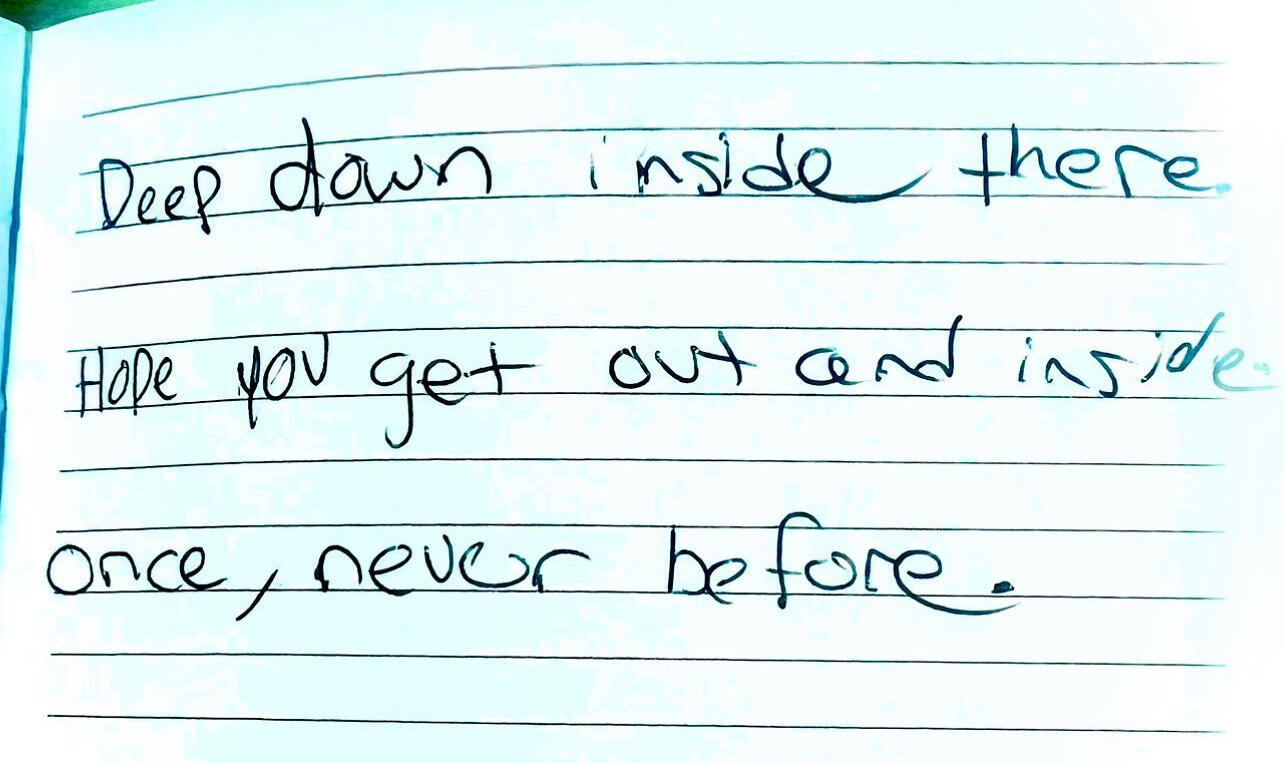 Deep down inside there.
Hope you get out and inside
once, never before.